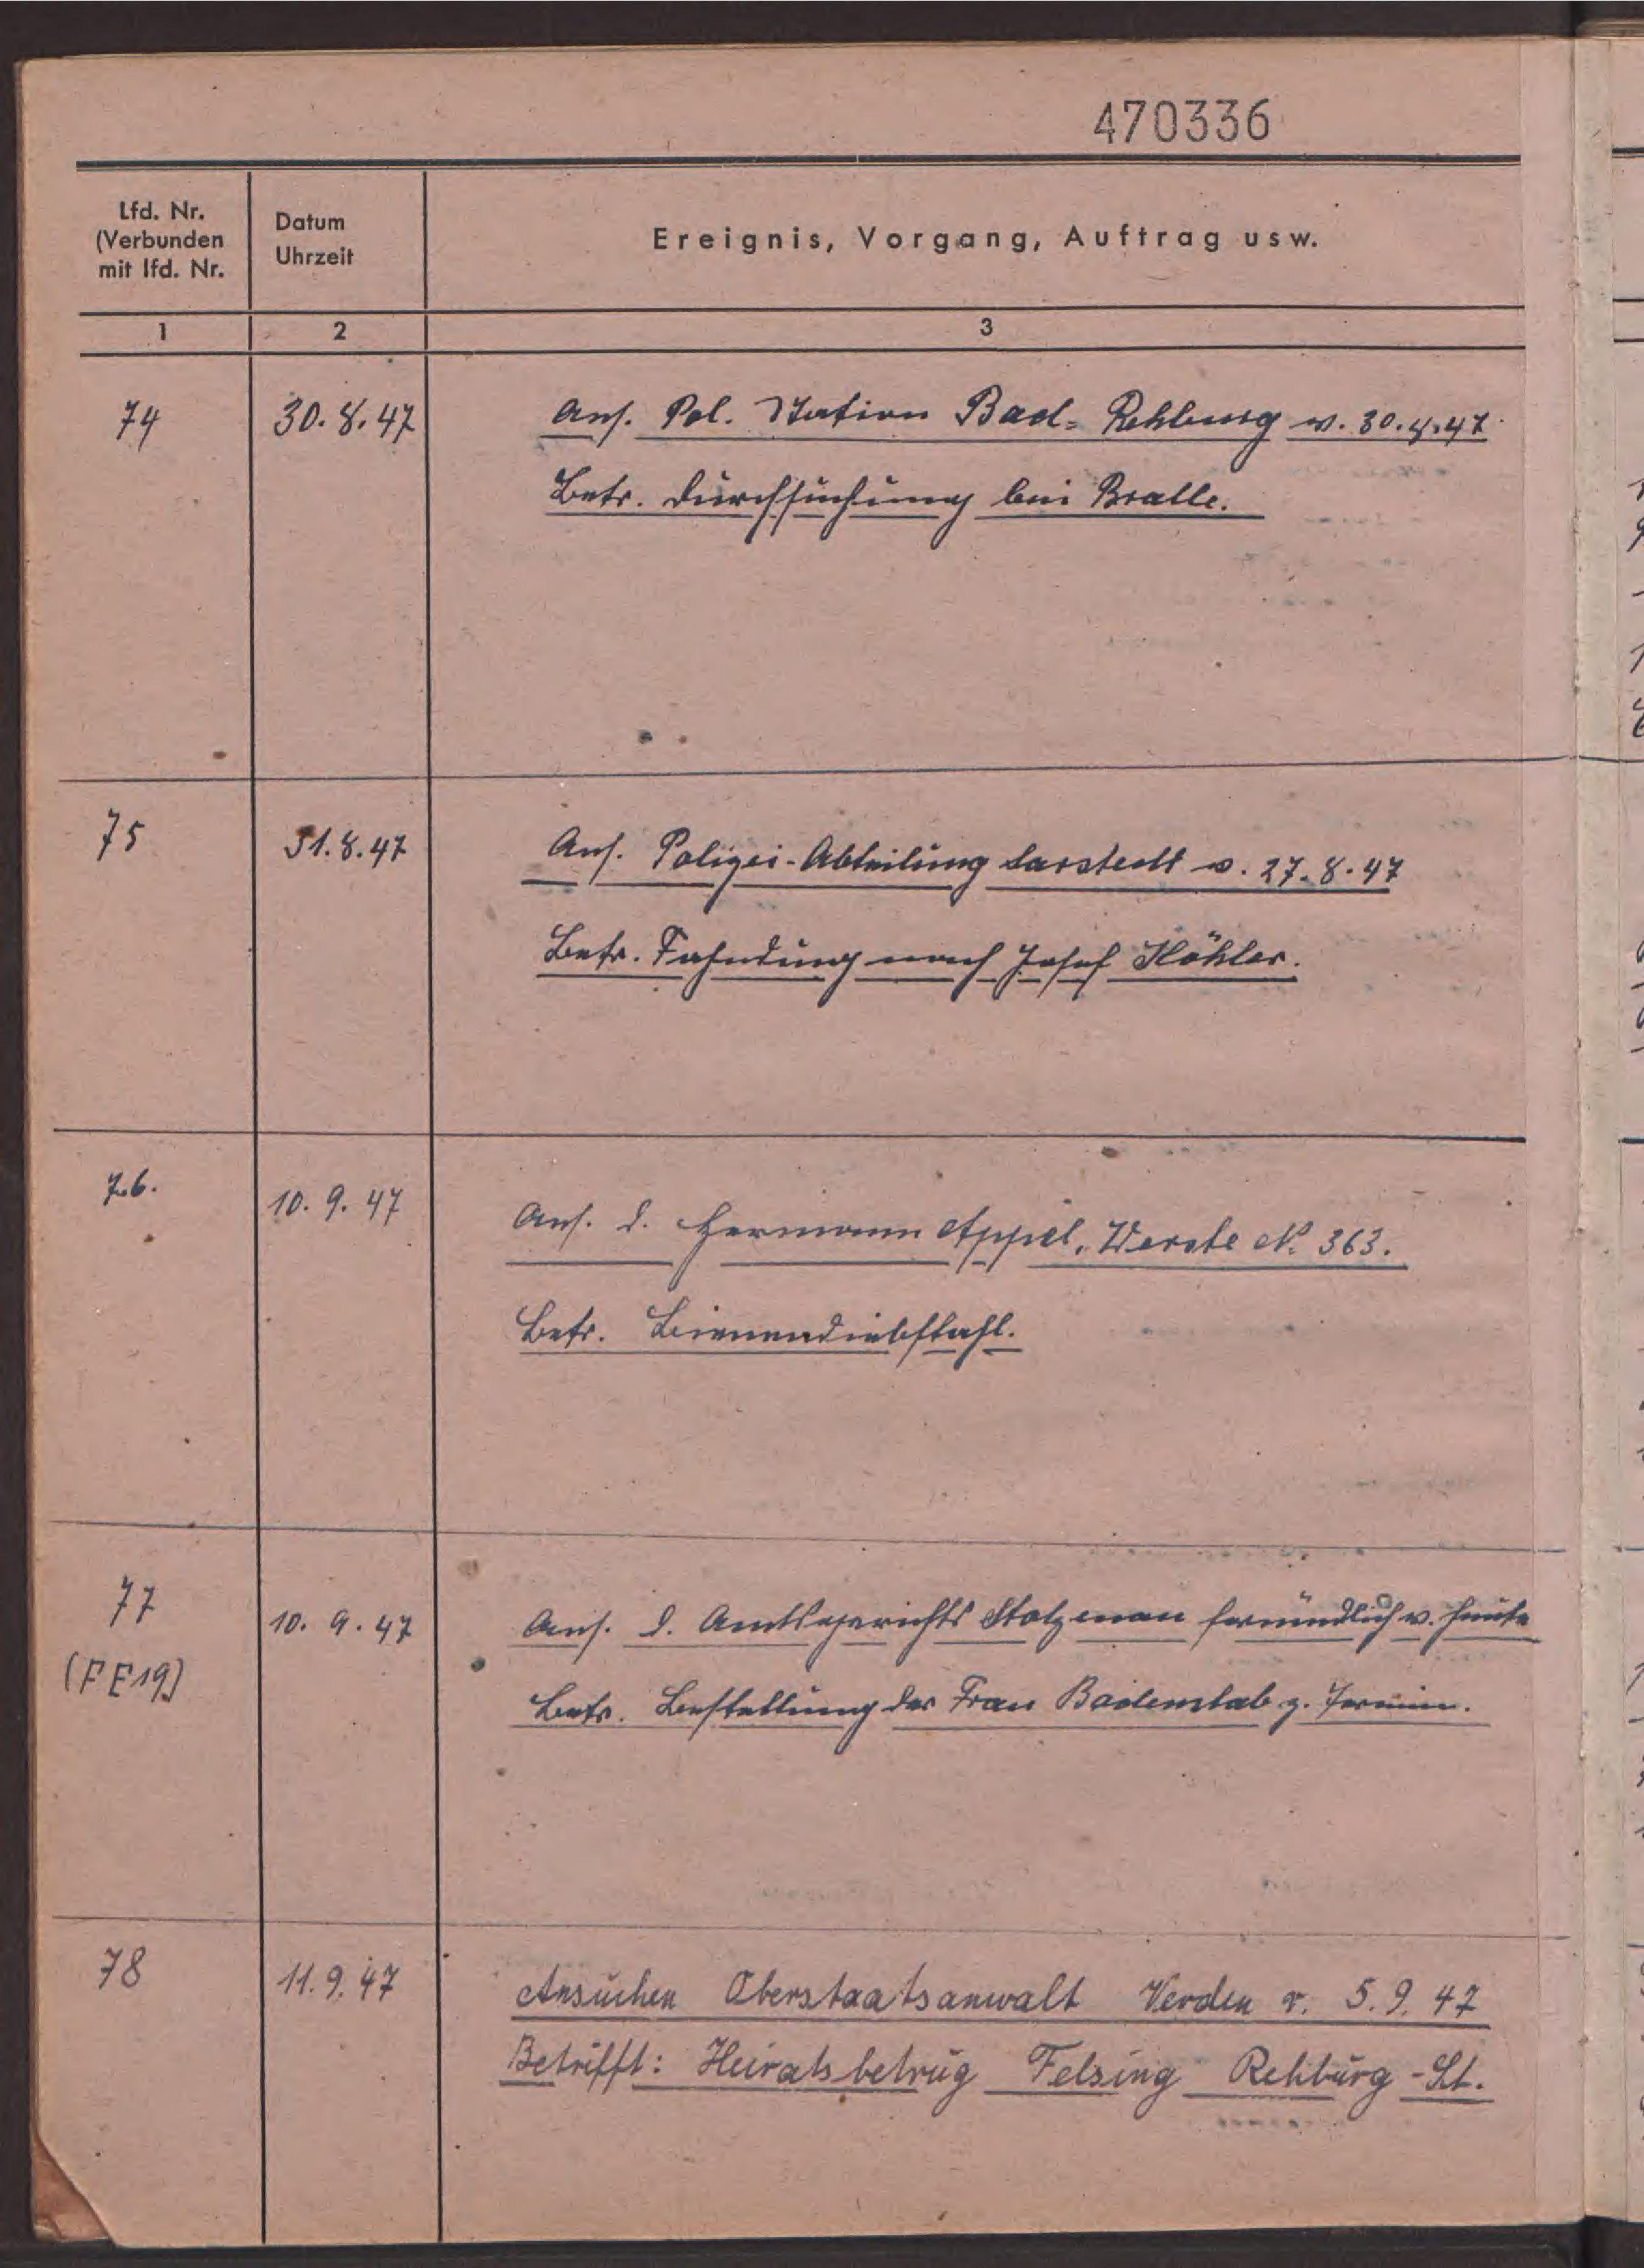 470336
Lfd. Nr.
(Verbunden
mit lfd. Nr.
Datum
Uhrzeit
Ereignis, Vorgang, Auftrag usw.
1 2 3
74 30.8.47 Ans. Pol. Station Bad-Rehburg v. 30.8.47
Betr. Durchsuchung bei Bralle.
75 31.8.47 Ans. Polizei-Abteilung Sarstedt v. 27.8.47
Betr. Fahndung nach Josef Köhler.
76. 10.9.47 Ans. d. Hermann Appel, Werste No. 363.
Betr. Bienendiebstahl.
77 10.9.47 Ans. d. Amtsgerichts Stolzenau fernmündlich v. heute
(FE19) Betr. Bestellung der Frau Badenstab z. Termin.
78 11.9.47 Ansuchen Oberstaatsanwalt Verden v. 5.9.47
Betrifft: Heiratsbetrug Felsing Rehburg-St.